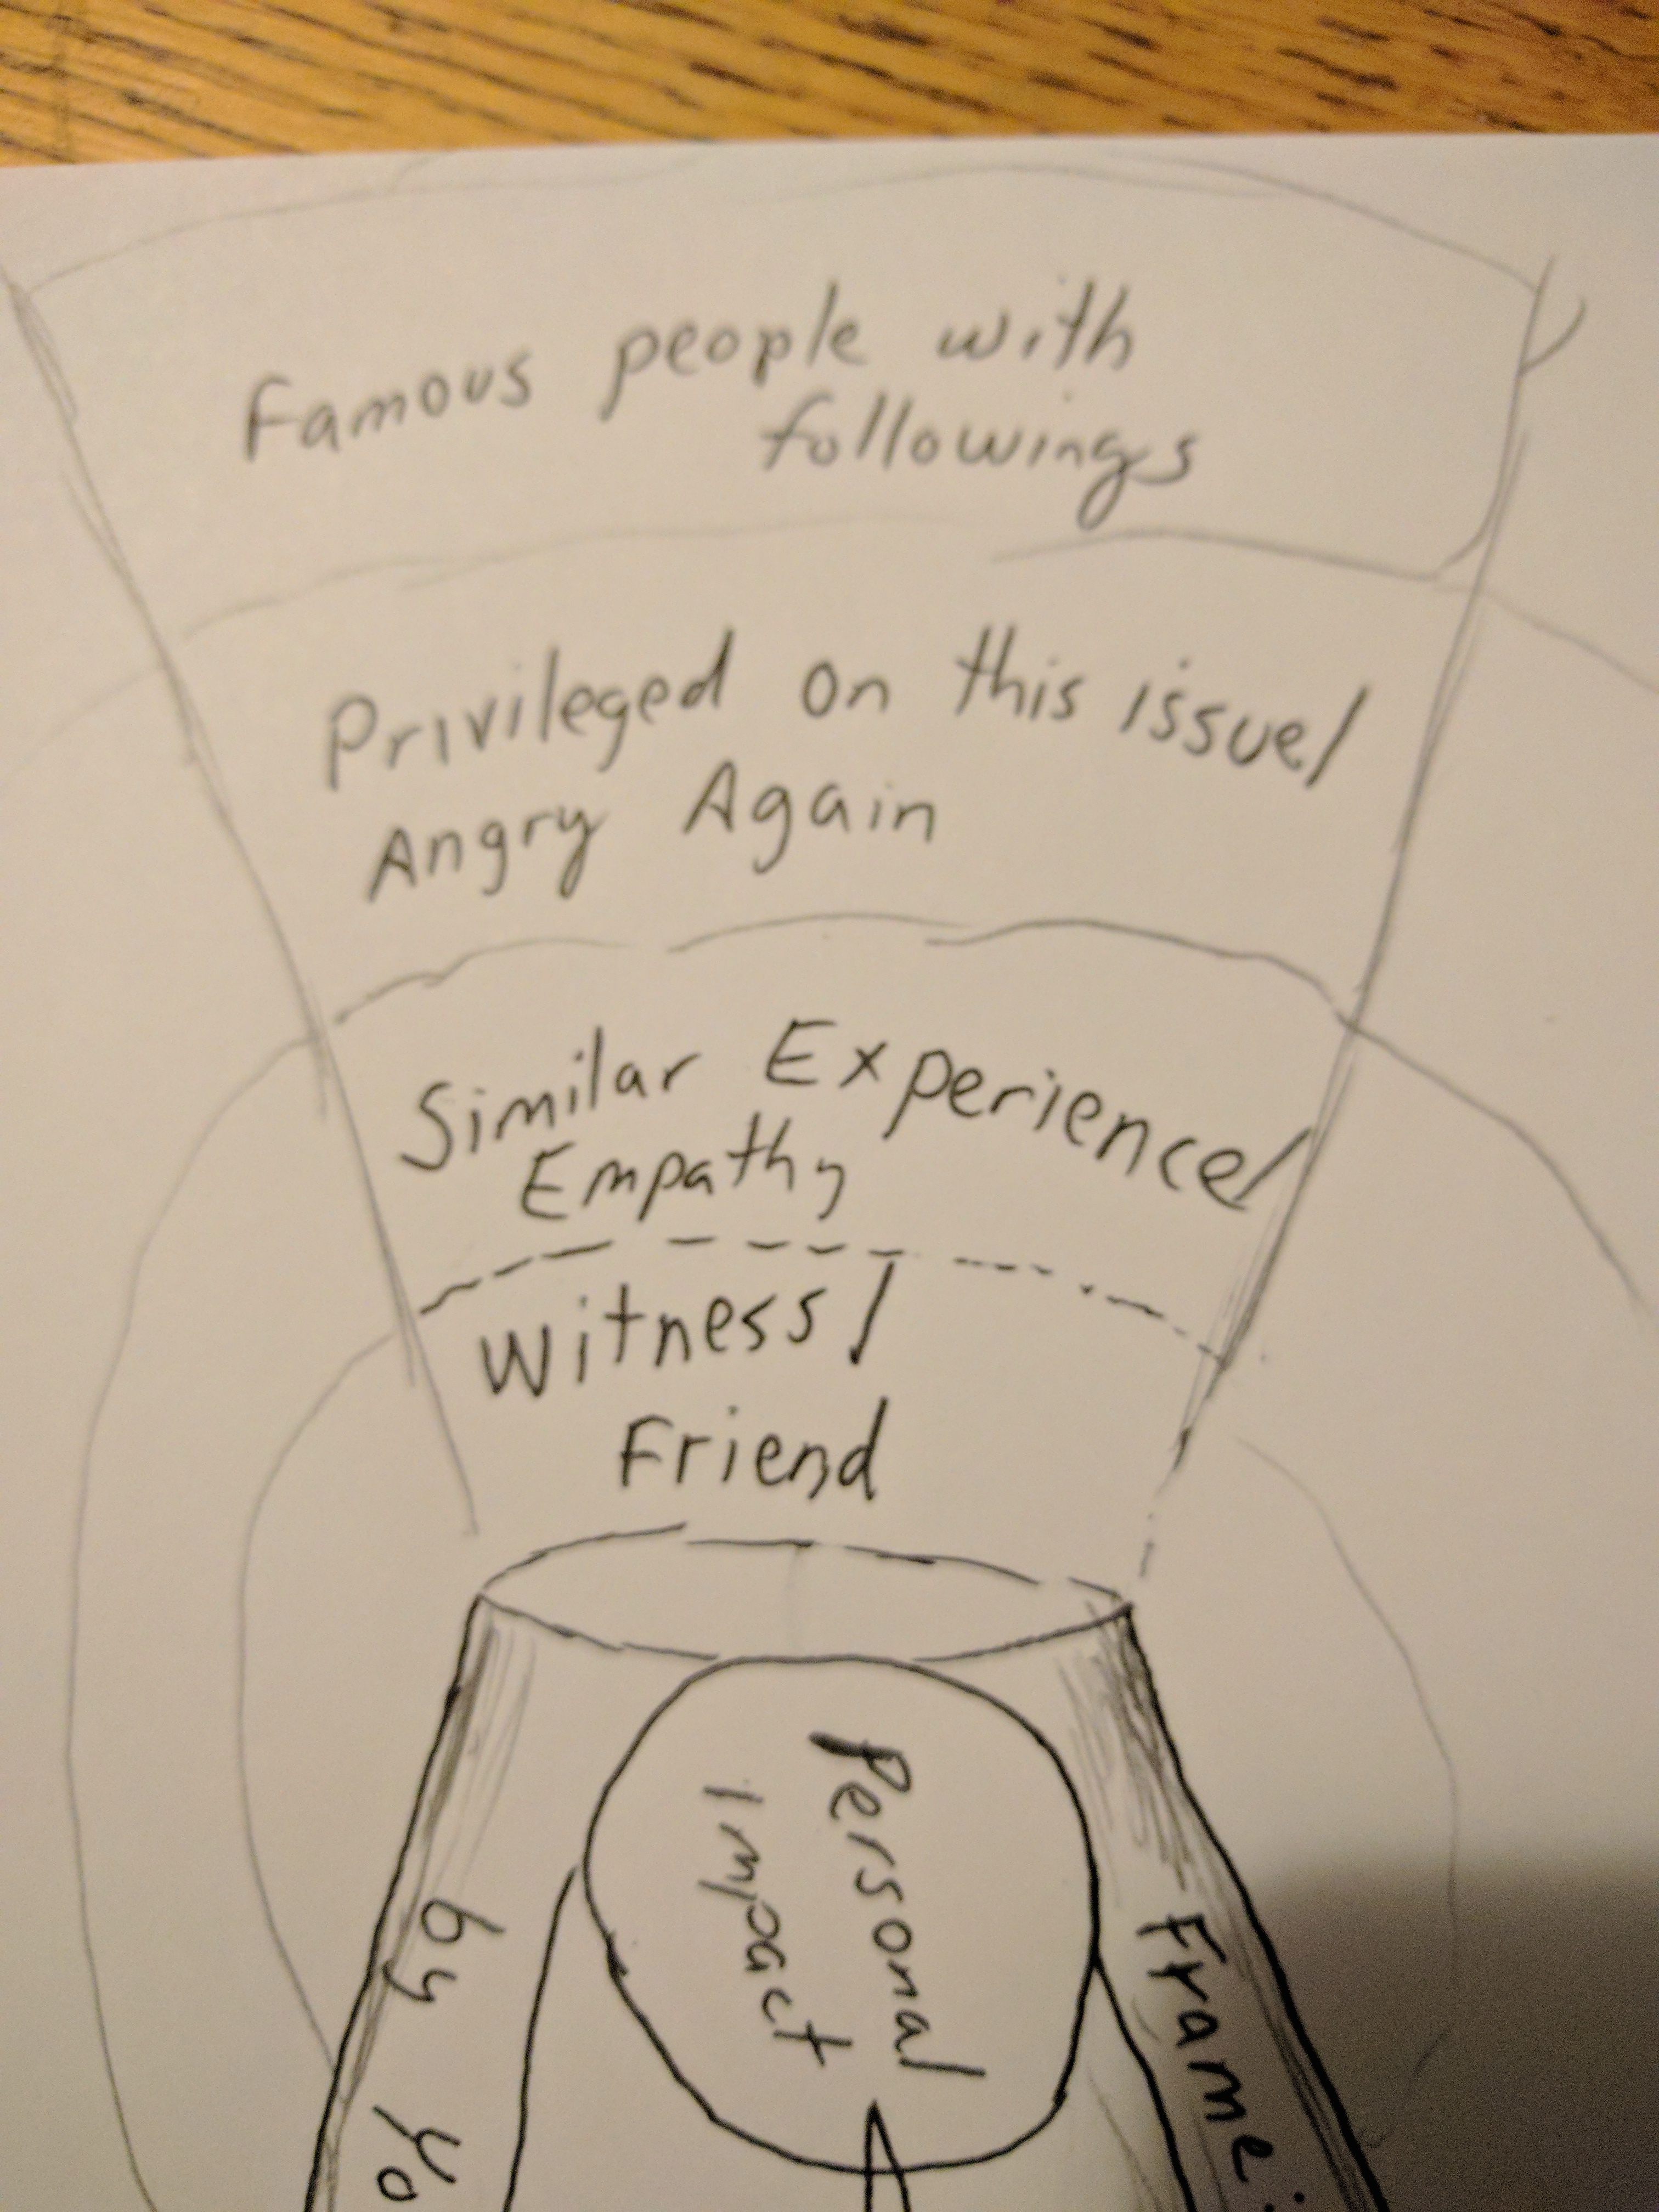 Famous people with
followings
Privileged on this issue/
Angry Again
Similar Experience/
Empathy
Witness/
Friend
Personal
Impact
Frame:
by Yo